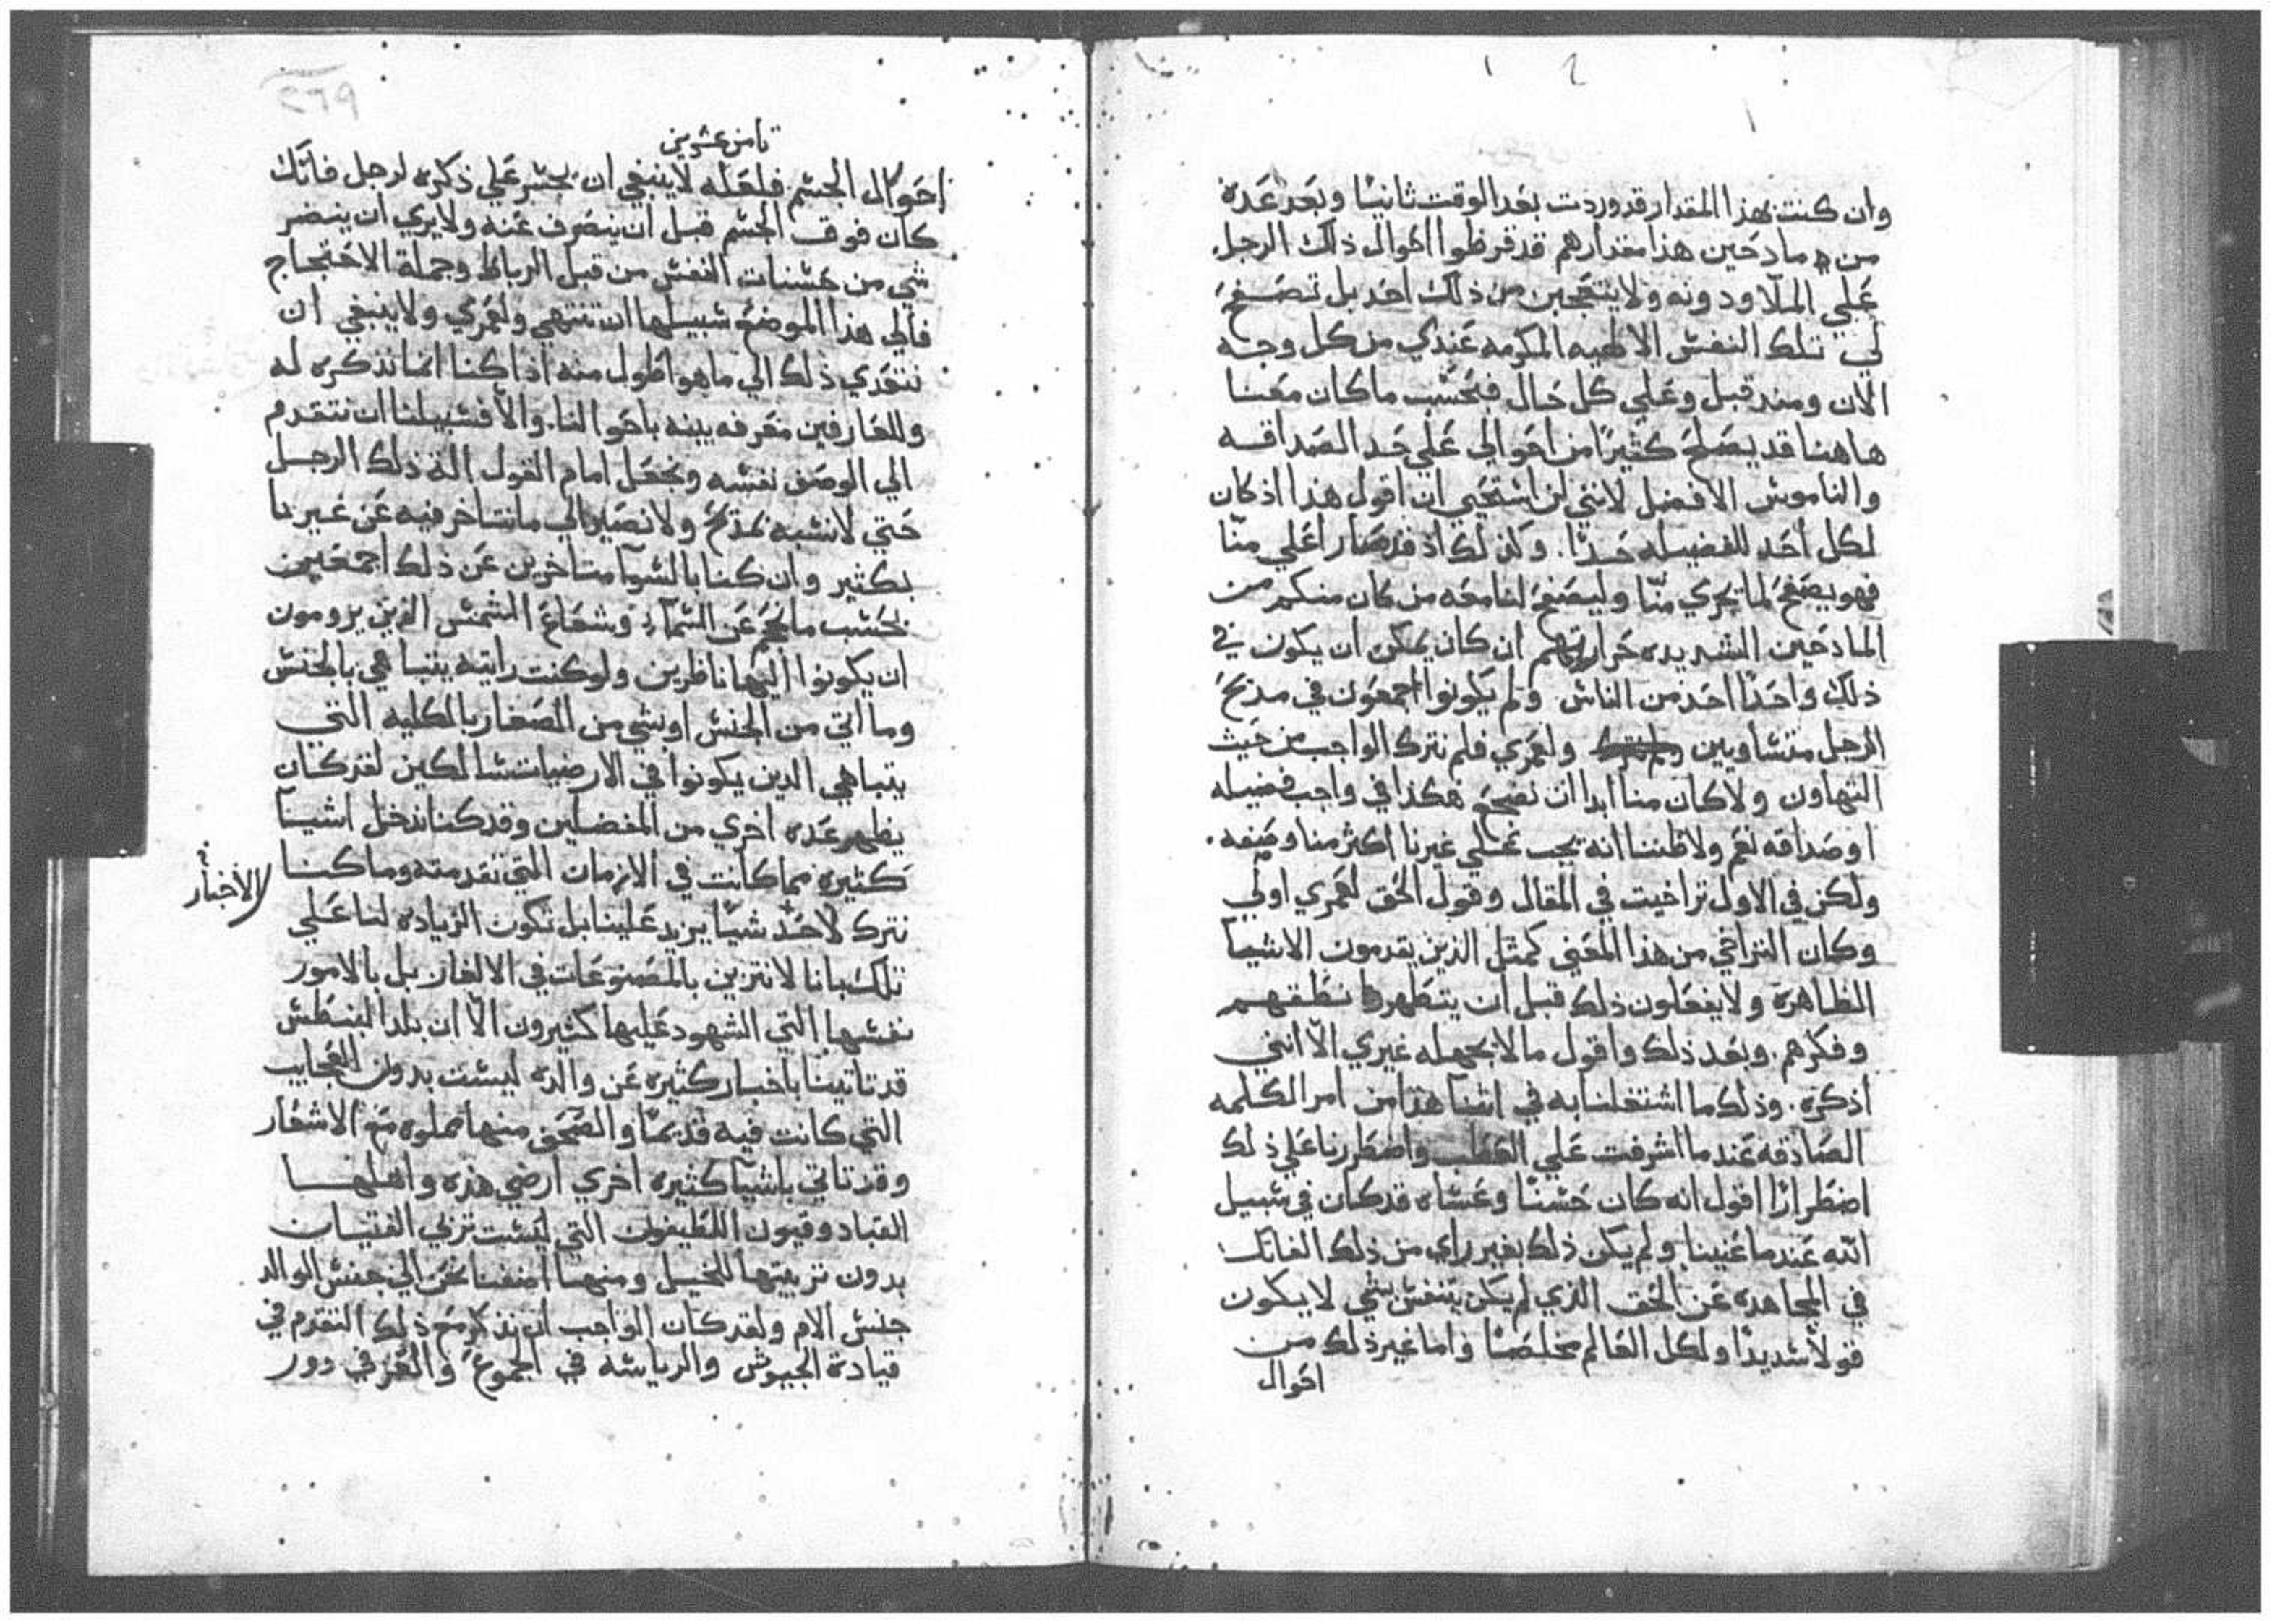 وان كنت بهذا المقدار قد وردت بعد الوقت ثانيا وبعد عدة
من مادحين هذا مقدارهم قد قرظوا احوال ذلك الرجل
علي الملا ودونه ولا يتعجبن من ذلك احد بل تصفح
لي تلك النفس الالهيه المكرمه عندي من كل وجه
الان ومند قبل وعلي كل حال فبحسب ما كان معنا
هاهنا قد يصلح كثيرًا من احوالي علي حد الصداقه
والناموس الافضل لانني لن استحيي ان اقول هذا اذ كان
لكل احد للفضيله حدًا. وكذلك اذ قد صار اعلي منّا
فهو يصفح لما يجري منّا وليصفح لنا معه من كان منكم من
المادحين الشديده حرارتهم ان كان يمكن ان يكون في
ذلك واحدًا احد من الناس ولم يكونوا اجمعون في مديح
الرجل متساويين ولعمري فلم نترك الواجب من حيث
التهاون ولا كان منا ابدا ان نضجع هكذا في واجب فضيله
او صداقه نعم ولا ظننا انه يجب علي غيرنا اكثر منا وصفه.
ولكن في الاول تراخيت في المقال وقول الحق لعمري اولي
وكان التراخي من هذا المعني كمثل الذين يقدمون الاشيا
الظاهرة ولا يفعلون ذلك قبل ان يتطهروا نطقهم
وفكرهم. وبعد ذلك واقول ما لا يجهله غيري الّا انني
اذكره. وذلك ما اشتغلنا به في اثنا هذا من امر الكلمه
الصادقه عند ما اشرفت علي العطب واضطررنا علي ذلك
اضطرارًا اقول انه كان حسنًا وعساه قد كان في سبيل
الله عند ما غنينا ولم يكن ذلك بغير راي من ذلك الفاتك
في المجاهده عن الحق الذي لم يكن يتنفس بشي لا يكون
قولًا سديدًا ولكل العالم مخلصًا واما غير ذلك من
احوال
تامن عشرين
احوال الجسم فلعله لا ينبغي ان يجسر علي ذكره لرجل فاتك
كان فوق الجسم قبل ان ينصرف عنه ولا يري ان ينضر
شي من حسنات النفس من قبل الرباط وجملة الاحتجاج
فالي هذا الموضع سبيلها ان تنتهي ولعمري ولا ينبغي ان
نتعدي ذلك الي ما هو اطول منه اذا كنا انما نذكره له
وللعارفين معرفه بينه باحوالنا. والّا فسبيلنا ان نتقدم
الي الوصف نفسه ونجعل امام القول الة ذلك الرجل
حتي لا نشبه بمدح ولا نصير الي ما نتاخر فيه عن غيرنا
بكثير وان كنا بالسوا متاخرين عن ذلك اجمعين
بحسب ما نحن عن السمآ وشعاع الشمس الذين يرومون
ان يكونوا اليها ناظرين ولو كنت رايته يتباهي بالجنس
وما اتي من الجنس او بشي من الصغار بالكليه التي
يتباهي الدين يكونوا في الارضيات سالكين لقد كان
يظهر عده اخري من المفضلين وقد كنا ندخل اشيا
كثيره مما كانت في الازمان التي تقدمته وما كنا
الاخبار
نترك لاحد شيًا يزيد علينا بل تكون الزياده لنا علي
تلك بانا لا نتزين بالمصنوعات في الالغاز بل بالامور
نفسها التي الشهود عليها كثيرون الّا ان بلد البنطس
قد تاتينا باخبار كثيره عن والده ليست بدون العجايب
التي كانت فيه قديمًا والصحف منها مملوه مع الاشعار
وقد تاتي باشيا كثيره اخري ارضي هذه واهلها
العباد وقبون اللطيفون التي ليست تربي الفتيان
بدون تربيتها للخيل ومنها اضفنا نحن الي جنس الوالد
جنس الام ولقد كان الواجب ان نذكر مع ذلك التقدم في
قيادة الجيوش والرياسه في الجموع والعز في دور